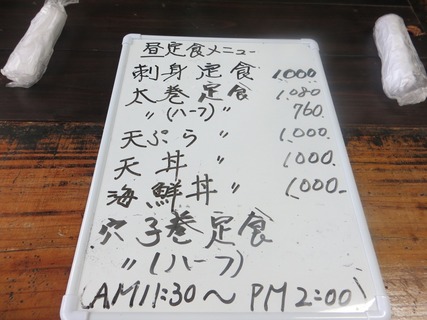 昼定食メニュー
刺身定食 1,000
太巻定食 1,080
〃(ハーフ) 760.
天ぷら 〃 1,000.
天丼 〃 1,000.
海鮮丼 〃 1,000-
穴子巻定食
〃(ハーフ)
(AM11:30〜PM2:00)